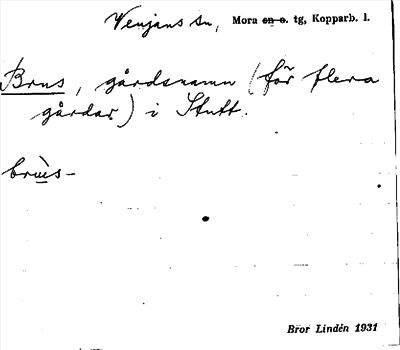 Venjans sn, Mora en o. tg, Kopparb. l.
Brus, gårdsnamn (för flera
gårdar) i Stutt.
Bror Lindén 1931